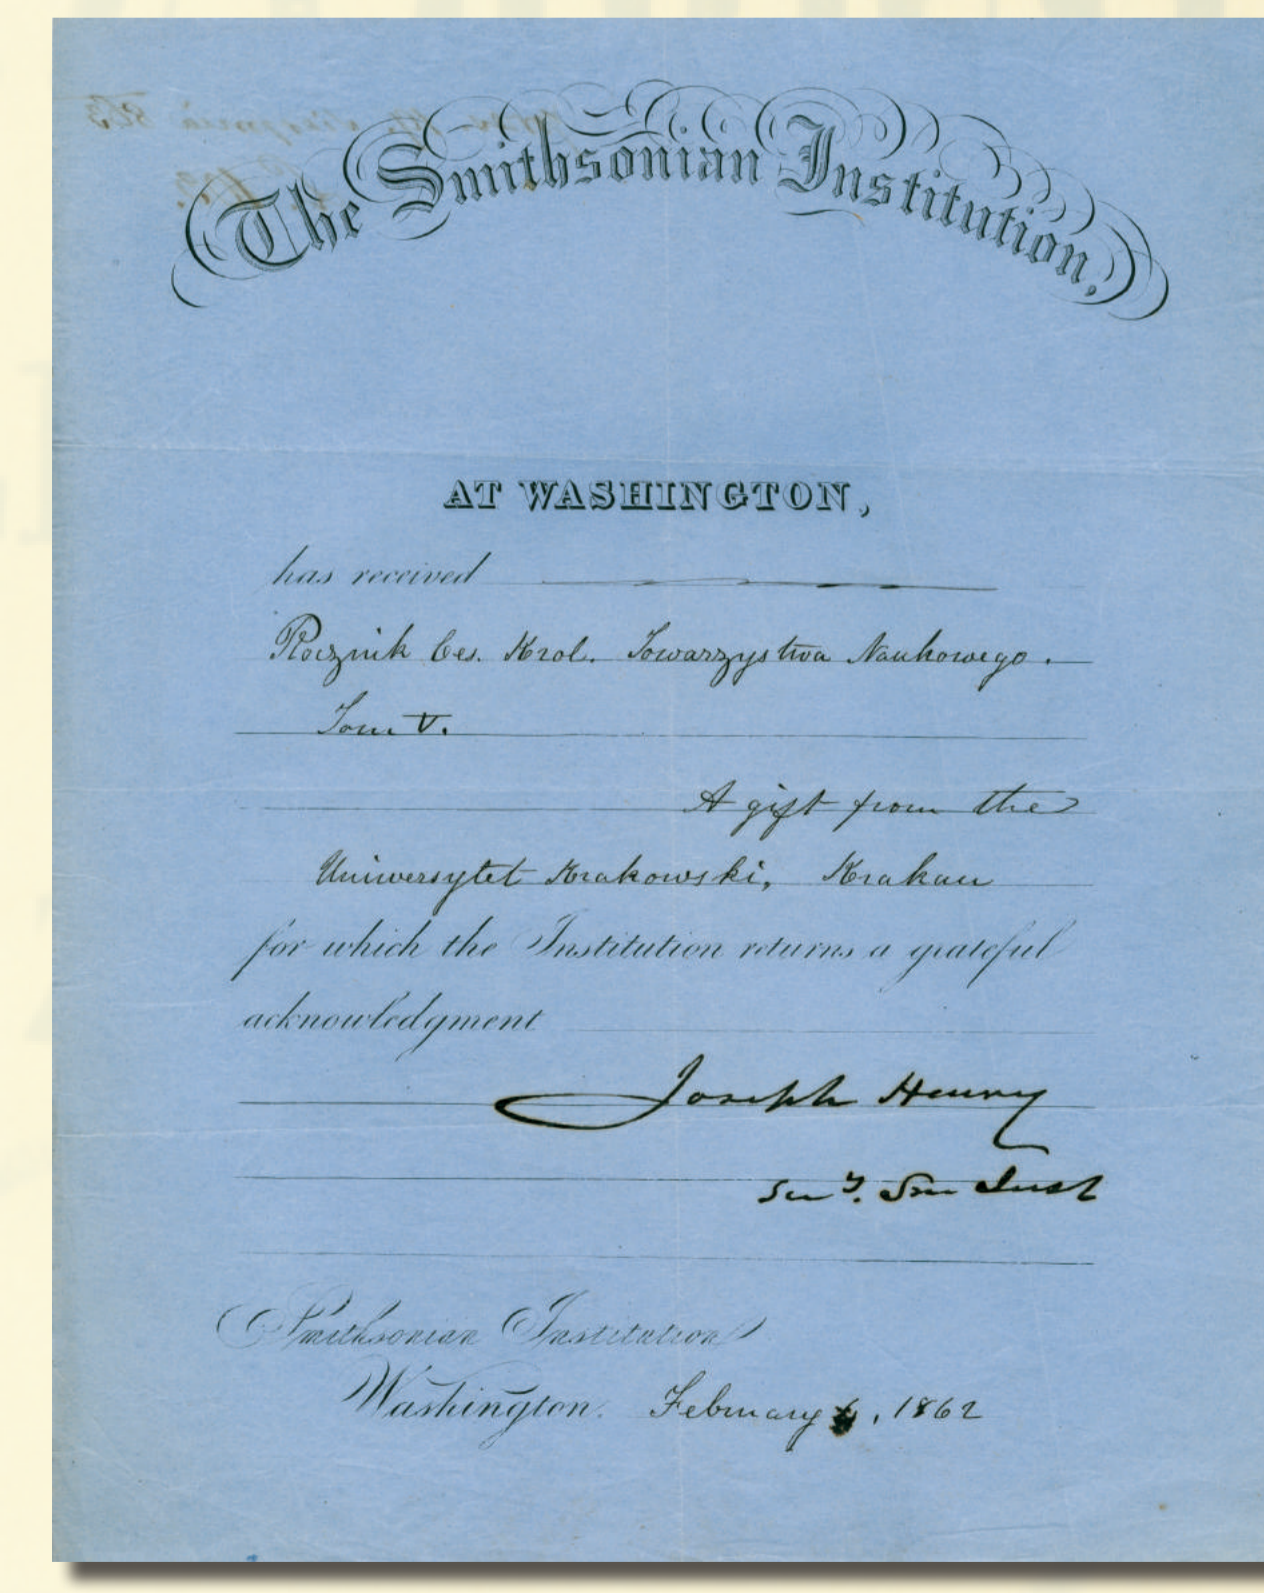 The Smithsonian Institution,
AT WASHINGTON,
has received
Rocznik Ces. Krol. Towarzystwa Naukowego.
Tom V.
A gift from the
Uniwersytet Krakowski, Krakau
for which the Institution returns a grateful
acknowledgment
Joseph Henry
Secy. Sm Inst
Smithsonian Institution
Washington. February , 1862